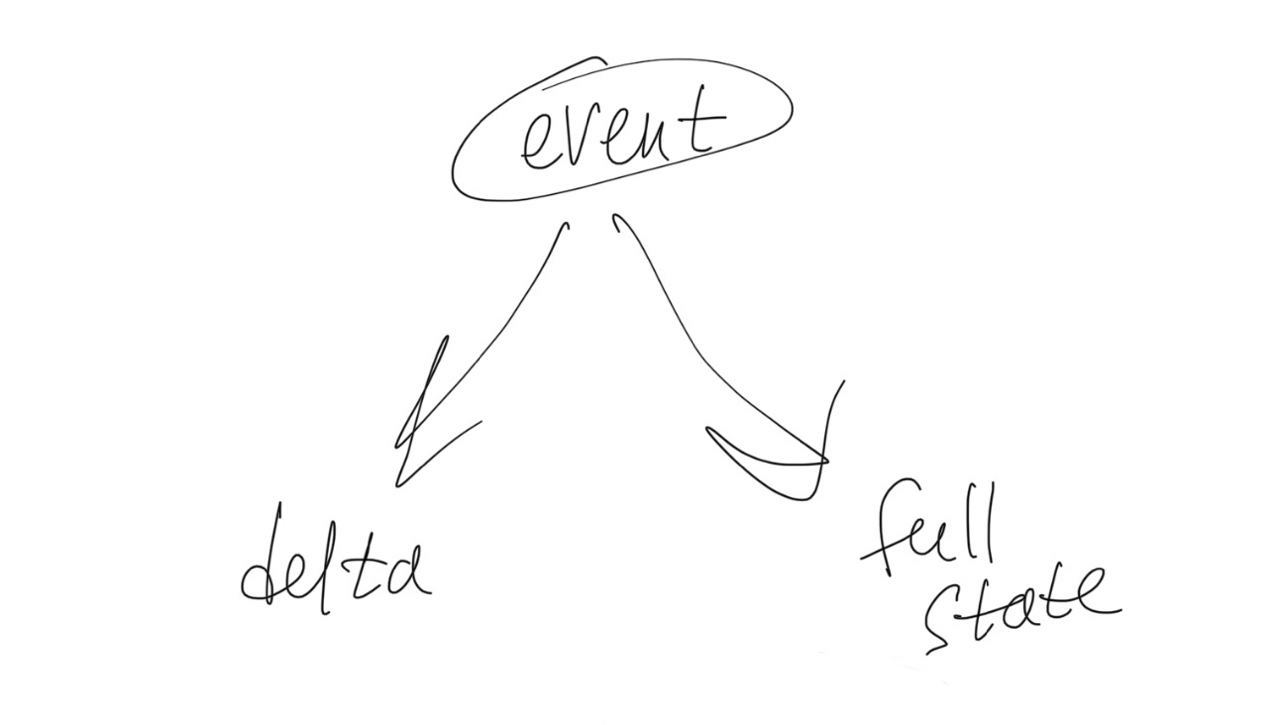 event
delta
full
state